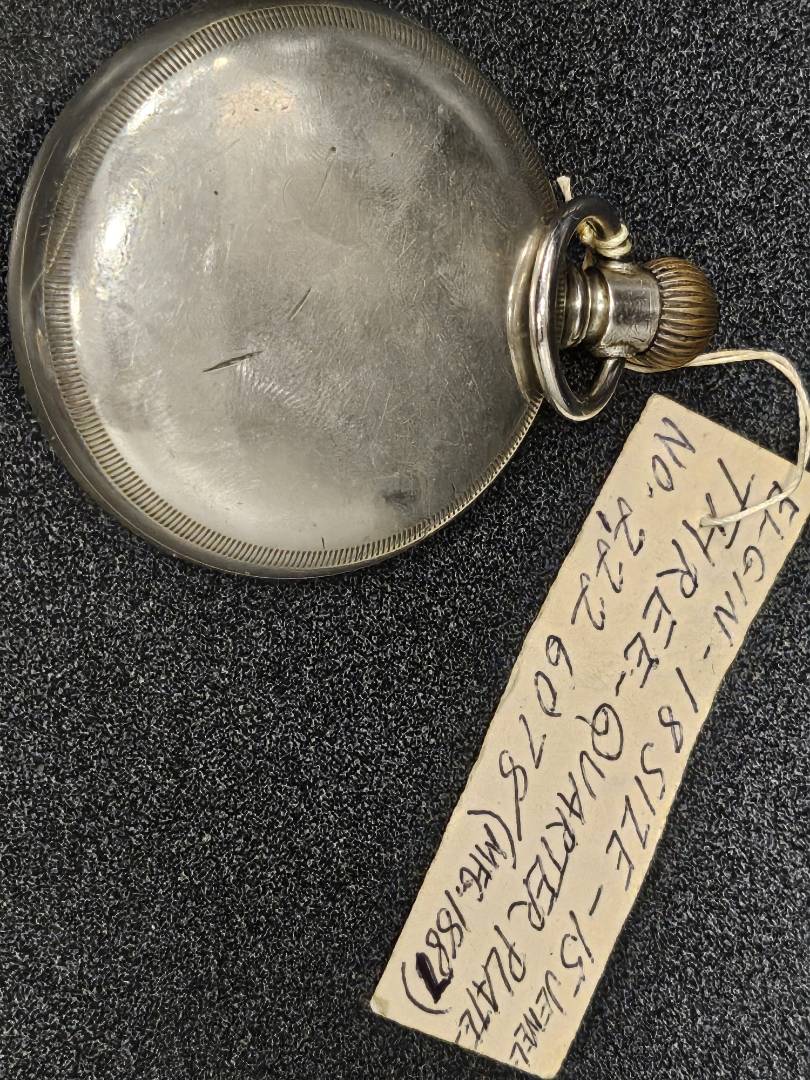 ELGIN - 18 SIZE - 15 JEWEL
THREE-QUARTER PLATE
NO. 2226078 (MFG. 1887)